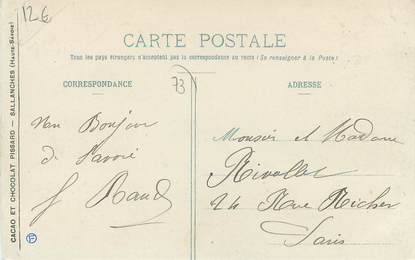 12€
CARTE POSTALE
Tous les pays étrangers n'acceptent pas la correspondance au recto (Se renseigner à la Poste)
CORRESPONDANCE
73
ADRESSE
Un Bonjour
de Savoie
Monsieur et Madame
Rivollet
24 Rue Richer
Paris
CACAO ET CHOCOLAT PISSARD — SALLANCHES (HAUTE-SAVOIE)